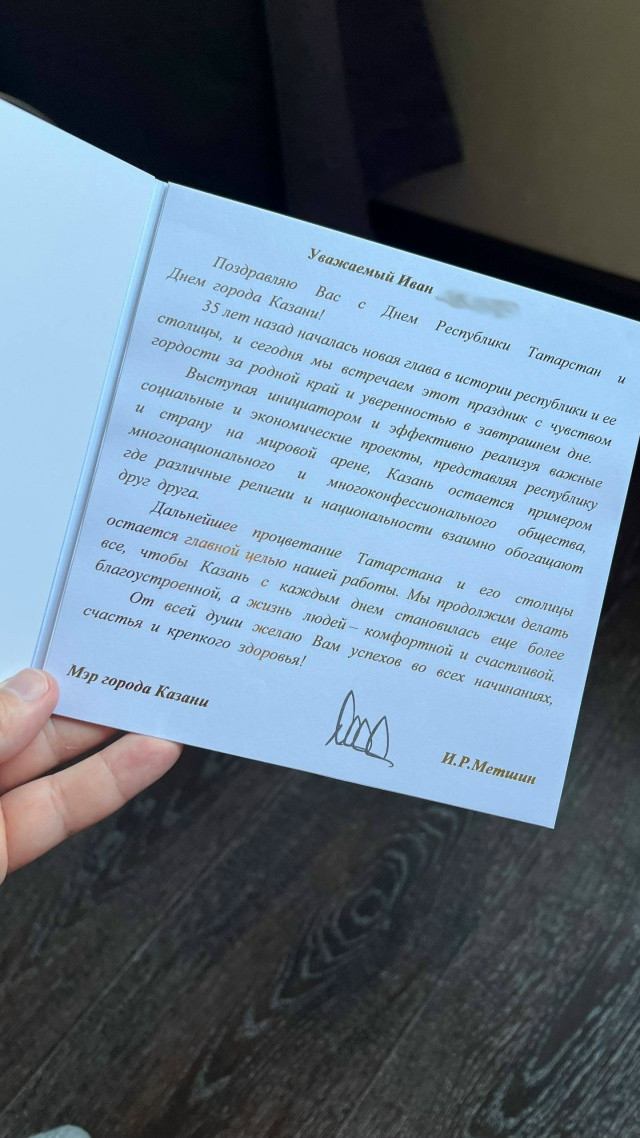 Уважаемый Иван
Поздравляю Вас с Днем Республики Татарстан и
Днем города Казани!
35 лет назад началась новая глава в истории республики и ее
столицы, и сегодня мы встречаем этот праздник с чувством
гордости за родной край и уверенностью в завтрашнем дне.
Выступая инициатором и эффективно реализуя важные
социальные и экономические проекты, представляя республику
и страну на мировой арене, Казань остается примером
многонационального и многоконфессионального общества,
где различные религии и национальности взаимно обогащают
друг друга.
Дальнейшее процветание Татарстана и его столицы
остается главной целью нашей работы. Мы продолжим делать
все, чтобы Казань с каждым днем становилась еще более
благоустроенной, а жизнь людей – комфортной и счастливой.
От всей души желаю Вам успехов во всех начинаниях,
счастья и крепкого здоровья!
Мэр города Казани
И.Р.Метшин